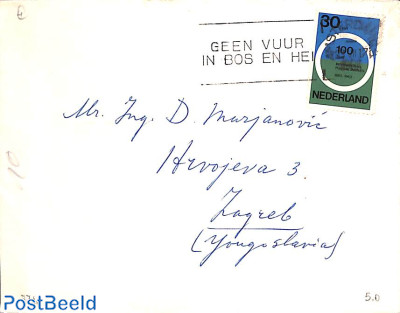 £
30
100
NEDERLAND
GEEN VUUR
IN BOS EN HEI
Mr. Ing. D. Marjanović
Hrvojeva 3.
Zagreb
(Yougoslavia)
PostBeeld
5.0